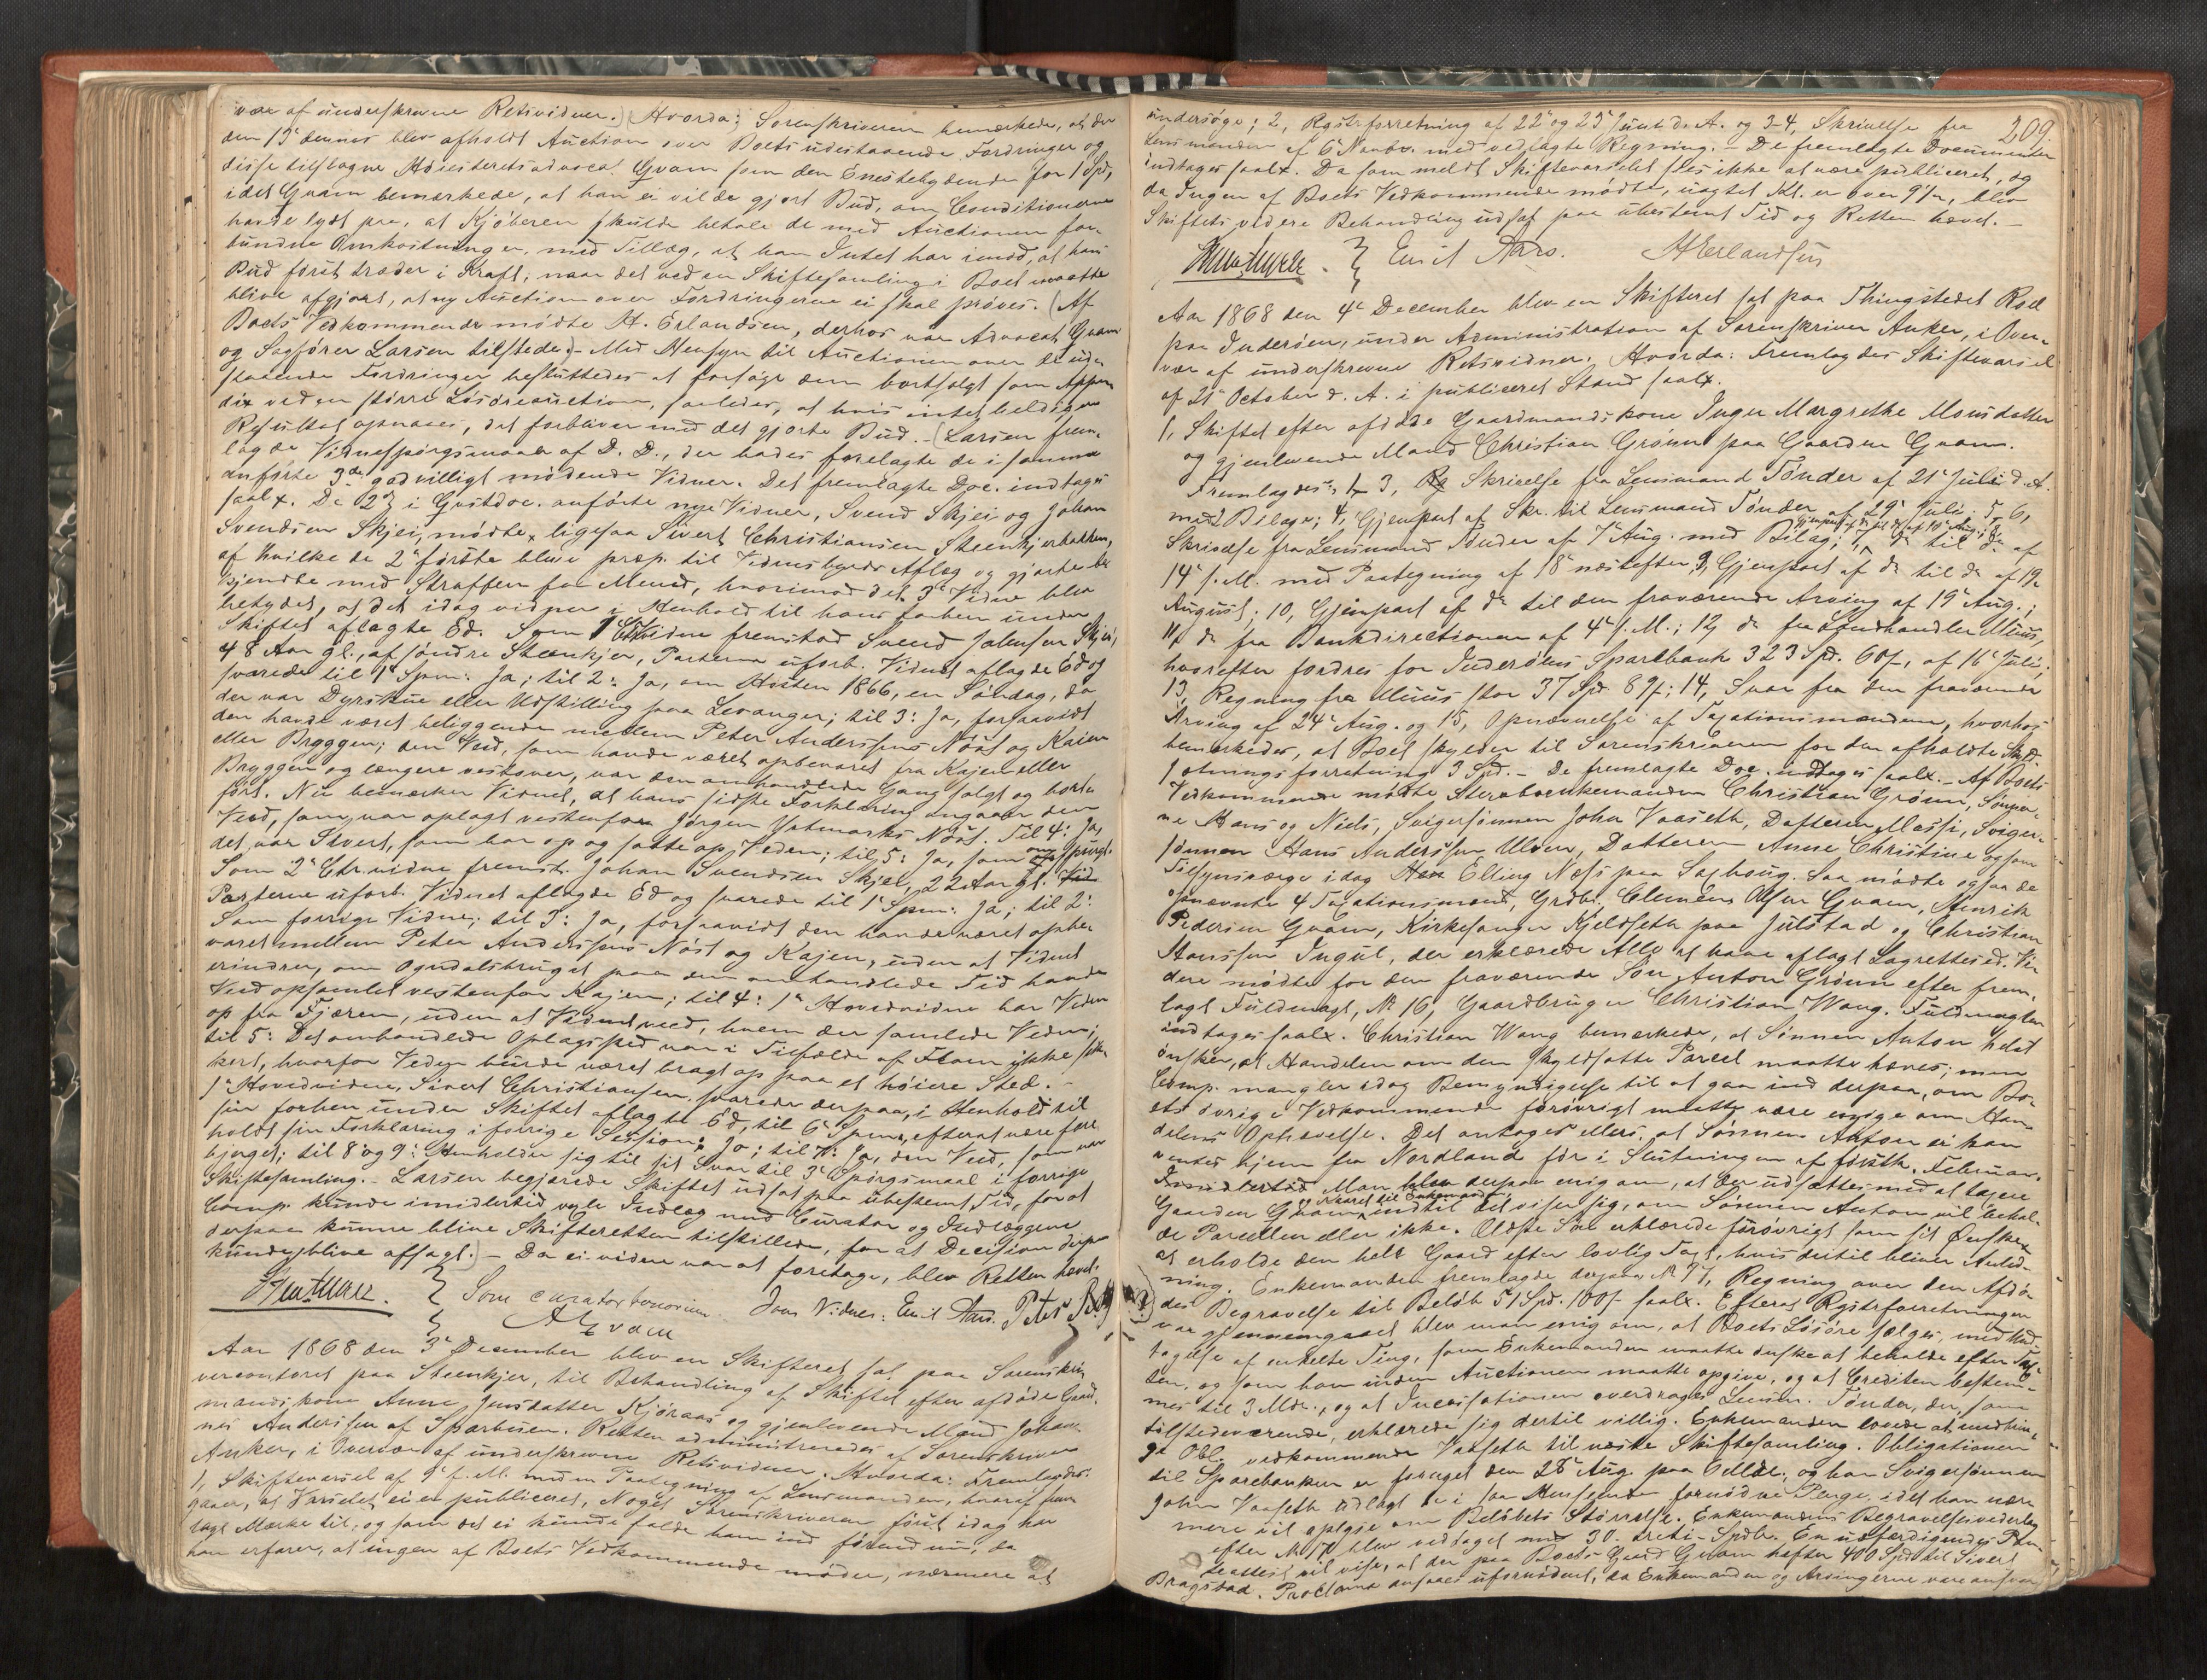 vær af underskrevne Retsvidner. (Hvorda: Sorenskriveren bemærkede, at der
den 13de dennes blev afholdt Auction over Boets udestaaende Fordringer og
disse tilsloges Høiesteretsadvocat Gram som den Eneste bydende for 1 Spd,
idet Gram bemærkede, at han ei vilde gjort Bud, om Conditionerne
havde lydt paa, at Kjøberen skulde betale de med Auctionen for-
bundne Omkostninger, med Tillæg, at han Intet har imod, at hans
Bud først træder i Kraft, naar det ved en Skiftesamling i Boet maatte
blive afgjort, at ny Auction over Fordringerne ei skal prøves. (Af
Boets Vedkommende mødte H. Erlandsen, derhos var Advocat Gram
og Sagfører Larsen tilstede.) - Med Hensyn til Auctionen over de ude-
staaende Fordringer besluttedes at forsøge dem bortsolgt som Appen-
dix ved en større Løsøreauction, saaledes, at hvis intet heldigere
Resultat opnaaes, det forbliver med det gjorte Bud. - (Larsen frem-
lagde Vidnespørgsmaale af D. D., der hades forelagte de i samme
anførte 3de godvilligt mødende Vidner. Det fremlagte Doc. indtages
saal. De 2de i Qvstdoc. anførte nye Vidner, Svend Skjei og Johan
Svendsen Skjei, mødte, ligesaa Sivert Christiansen Steenkjerbakken,
af hvilke de 2de første bleve præp. til Vidnesbyrds Aflæg og gjorte be-
kjendte med Straffen for Mened, hvorimod det 3de Vidne blev
betydet, at det idag vidner i Henhold til hans forhen under
Skiftet aflagte Ed. Som 1ste Ctrvidne fremstod Svend Johnsen Skjei,
48 Aar gl., af søndre Steenkjer, Parterne uforb. Vidnet aflagde Ed og
svarede til 1ste Spm: Ja; til 2: Ja, om Høsten 1866, en Søndag, da
der var Dyrskue eller Udstilling paa Levanger; til 3: Ja, forsaavidt
den havde været beliggende mellem Peter Anderssens Nøst og Kaien
eller Bryggen; den Ved, som havde været opbevaret fra Kajen eller
Bryggen og længere vestover, var den omhandlede Gang solgt og bortø
ført. Nu bemærker Vidnet, at hans sidste Forklaring angaar den
Ved, som var oplagt vestenfor Jørgen Vatmarks Nøst. Til 4: Ja,
det var Sivert, som bar op og satte op Veden; til 5: Ja, som om spurgt.
Som 2de Ctr.vidne fremst. Johan Svendsen Skjei, 22 Aar gl.
Parterne uforb. Vidnet aflagde Ed og svarede til 1ste Spm: Ja; til 2:
Som forrige Vidne; til 3: Ja, forsaavidt den havde været opbe-
varet mellem Peter Anderssens Nøst og Kajen, uden at Vidnet
erindrer, om Ogndalsbruget paa den omhandlede Tid havde
Ved opsamlet vestenfor Kajen; til 4: 1ste Hovedvidne bar Veden
op fra Fjæren, uden at Vidnet veed, hvem der samlede Veden;
til 5: Det omhandlede Oplagssted var i Tilfælde af Flom ikke sik-
kert, hvorfor Veden burde været bragt op paa et høiere Sted. -
1ste Hovedvidne, Sivert Christiansen svarede derpaa, i Henhold til
sin forhen under Skiftet aflagte Ed, til 6te Spm., efterat være fore-
holdt sin Forklaring i forrige Session: Ja; til 7: Ja, den Ved, som var
bjerget; til 8 og 9: Henholder sig til sit Svar til 3de Spørgsmaal i forrige
Skiftesamling. - Larsen begjærede Skiftet udsat paa ubestemt Tid, for at
Comp. kunde imidlertid vexle Indlæg med Curator og Indlæggene
derpaa kunne blive Skifteretten tilstillede, for at Decision derpaa
kunde blive afsagt.) - Da ei videre var at foretage, blev Retten hævet.
Som curator bonorum. Som Vidner: Emil Aars. Peter
AGram
Aar 1868 den 3de December blev en Skifteret sat paa Sorenskri-
vercontoret paa Steenkjer, til Behandling af Skiftet efter afdøde Gaard-
mandskone Anne Jensdatter Kjøraas og gjenlevende Mand Johan-
nes Anderssen af Sparbuen. Retten administreredes af Sorenskriver
Anker, i Overvær af underskrevne Retsvidner. Hvorda: Fremlagdes:
1, Skiftevarsel af 9de f. M. med en Paategning af Lensmanden, hvoraf frem-
gaaer, at Varselet ei er publiceret, Noget Sorenskriveren først idag har
lagt Mærke til, og som det ei kunde falde ham ind førend nu, da
han erfarer, at ingen af Boets Vedkommende møder, nærmere at
209.
undersøge; 2, Rgstrforretning af 22de og 23de Juni d. A. og 3-4, Skrivelse fra
Lensmanden af 6te Novbr. med vedlagte Regning. - De fremlagte Documenter
indtages saal. Da som meldt Skiftevarselet sees ikke at være publiceret, og
da Ingen af Boets Vedkommende mødte, uagtet Kl. er over 9 1/2, blev
Skiftets videre Behandling udsat paa ubestemt Tid og Retten hævet. -
Emil Aars. HErlandsen
Aar 1868 den 4de December blev en Skifteret sat paa Thingstedet Roel
paa Inderøen, under Administration af Sorenskriver Anker, i Over-
vær af underskrevne Retsvidner. Hvorda: Fremlagdes Skiftevarsel
af 21de October d. A. i publiceret Stand saal.
1, Skiftet efter afdøde Gaardmandskone Inger Margrethe Monsdatter
og gjenlevende Mand Christian Grønn paa Gaarden Gvam.
Fremlagdes, 1- 3, Skrivelse fra Lensmand Tønder af 21de Juli d. A.
med 2 Bilage; 4, Gjenpart af Skr. til Lensmand Tønder af 29de Juli; 5, 6,
Skrivelse fra Lensmand Tønder af 7de Aug. med Bilag; 7, Gjenpart af do til do af 10de Aug; 8, do til do af
14de s. M. med Paategning af 18de næstefter; 9, Gjenpart af do til do af 19.
August; 10, Gjenpart af do til den fraværende Arving af 19de Aug.;
11, do fra Bankdirectionen af 4de s. M.; 12, do fra Landhandler Muus,
hvorefter fordres for Inderøens Sparebank 323 Spd. 60 s, af 16de Juli;
13, Regning fra Muus stor 37 Spd. 89 s; 14, Svar fra den fraværende
Arving af 24de Aug. og 15, Opnævnelse af Taxationsmændene, hvorhos
bemærkedes, at Boet skylder til Sorenskriveren for den afholdte Skyld-
sætningsforretning 3 Spd. - De fremlagte Doc. indtages saal. - Af Boets
Vedkommende mødte Stervboenkemanden Christian Grønn, Sønner-
ne Hans og Niels, Svigersønnen John Vaaseth, Datteren Massi, Sviger-
sønnen Hans Anderssen Ulven, Datteren Anne Christine og som
Tilsynsværge idag Elling Næss paa Saxhaug. Saa mødte ogsaa de
opnævnte 4 Taxationsmænd, Grdbr. Clemens Olsen Gvam, Henrik
Pedersen Gvam, Kirkesanger Kjeldseth paa Jülstad og Christian
Hanssen Ingul, der erklærede Alle at have aflagt Lagrettesed. Vi-
dere mødte for den fraværende Søn Anton Grønn efter frem-
lagt Fuldmagt, No 16, Gaardbruger Christian Wang. Fuldmagten
indtages saal. Christian Wang bemærkede, at Sønnen Anton helst
ønsker, at Handelen om den skyldsatte Parcel maatte hæves; men
Comp. mangler idag Bemyndigelse til at gaa ind derpaa, om Bo-
ets øvrige Vedkommende forøvrigt maatte være enige om Han-
delens Ophævelse. Det antages ellers, at Sønnen Anton ei kan
ventes hjem fra Nordland før i Slutningen af førstk. Februar.
Man blev derpaa enig om, at der udsættes med at taxere
Gaarden Gvam og Kaaret til Enkemanden indtil det viser sig, om Sønnen Anton vil behol-
de Parcellen eller ikke. Ældste Søn erklærede forøvrigt som sit Ønske
at erholde den hele Gaard efter lovlig Taxt, hvis dertil bliver Anled-
ning. Enkemanden fremlagde derpaa, No 17, Regning over den Afdø-
des Begravelse til Beløb 51 Spd. 100 s saal. Efterat Rgstrforretningen
var gjennemgaaet blev man enig om, at Boets Løsøre sælges, med Und-
tagelse af enkelte Ting, som Enkemanden maatte ønske at beholde efter Tax-
ten, og som han inden Auctionen maatte opgive, og at Crediten bestem-
mes til 3 Mdr., og at Incassationen overdrages Lensm. Tønder, der, som
tilstedeværende, erklærede sig dertil villig. Enkemanden lovede at medbrin-
ge Obl. vedkommende Vaaseth til næste Skiftesamling. Obligationen
til Sparebanken er fornyet den 28de Aug. paa 6 Mdr., og har Svigersønnen
John Vaaseth udlagt de i saa Henseende fornødne Penge, idet han nær-
mere vil oplyse om Beløbets Størrelse. Enkemandens Begravelsesvederlag
efter No 17 blev vedtaget med 30 - treti - Spdlr. En udfærdigendes Pan-
teattest vil vise, at der paa Boets Gaard Gvam hefter 400 Spd til Sivert
Bragstad. Proclama ansaaes ufornødent, da Enkemanden og Arvingerne vare ansvar-